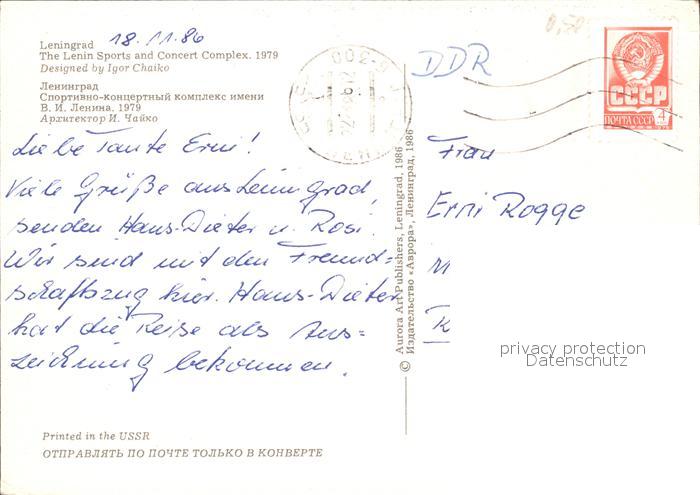 Leningrad 18.11.86
The Lenin Sports and Concert Complex. 1979
Designed by Igor Chaiko
Ленинград
Спортивно-концертный комплекс имени
В. И. Ленина. 1979
Архитектор И. Чайко
Liebe Tante Erni!
Viele Grüße aus Leningrad
senden Hans-Dieter u. Rosi.
Wir sind mit den Freund=
schaftszug hier. Hans-Dieter
hat die Reise als Aus=
zeichnung bekommen.
Printed in the USSR
ОТПРАВЛЯТЬ ПО ПОЧТЕ ТОЛЬКО В КОНВЕРТЕ
© Aurora Art Publishers, Leningrad, 1986
Издательство «Аврора», Ленинград, 1986
0,50
DDR
СССР
ПОЧТА СССР 4
Frau
Erni Rogge
M
K
privacy protection
Datenschutz